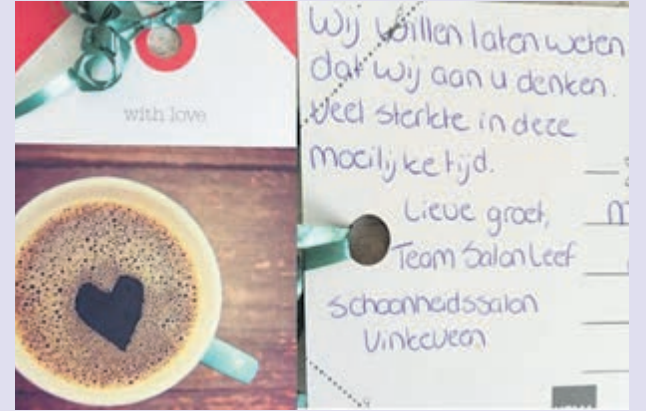 with love
Wij willen laten weten
dat wij aan u denken.
Veel sterkte in deze
moeilijke tijd.
Lieve groet,
Team Salon Leef
Schoonheidssalon
Vinkeveen